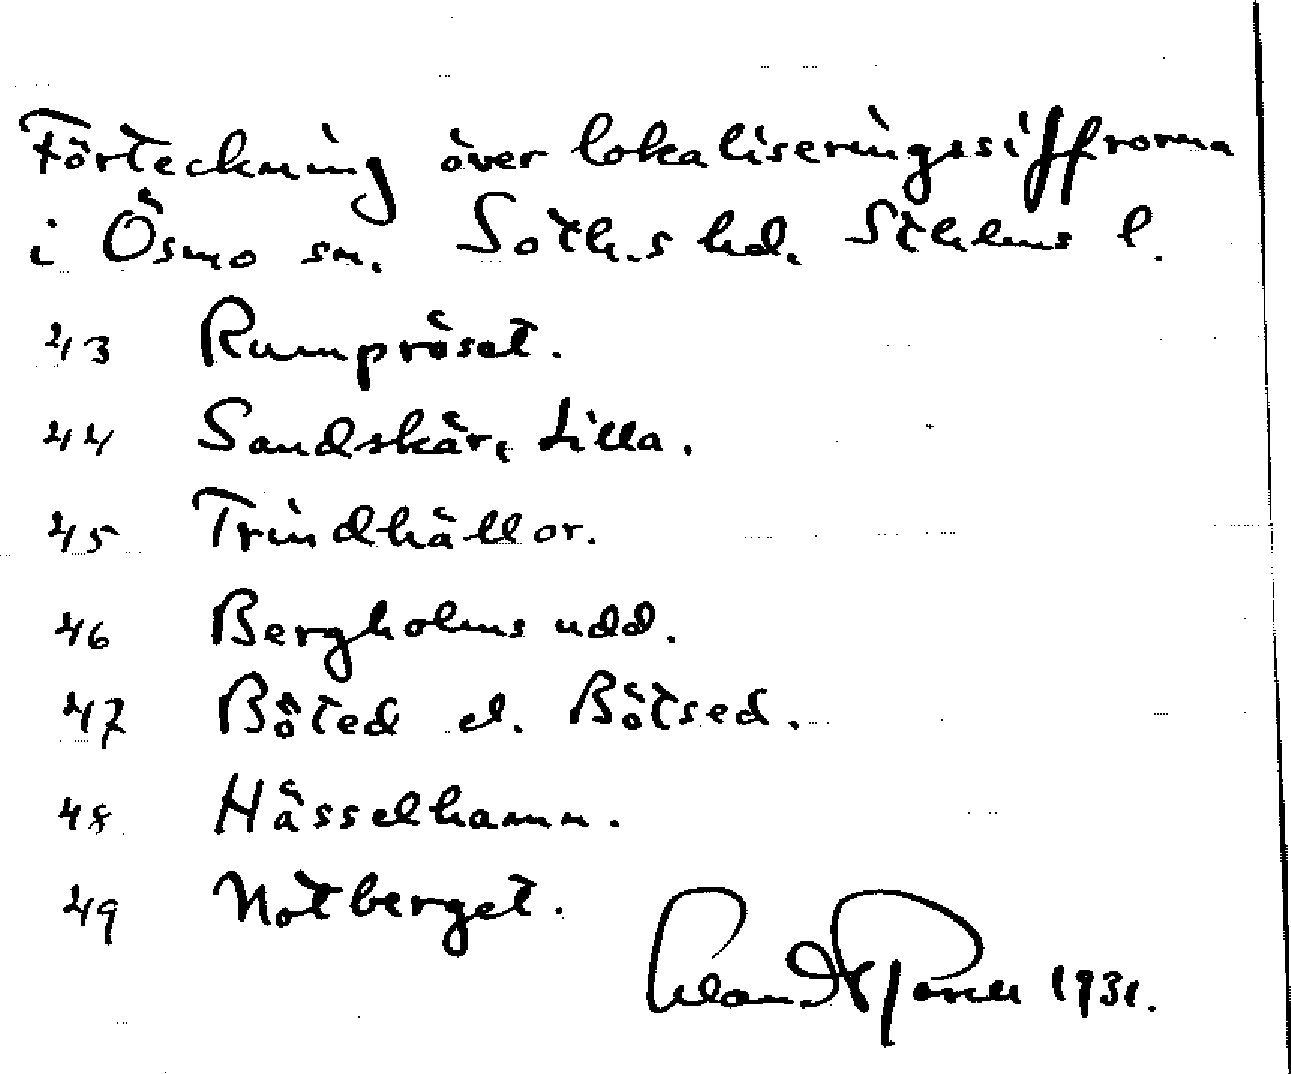 Förteckning över lokaliseringssiffrorna
i Ösmo sn. Soth.s hd. Sthlms l.
43 Rumpröset.
44 Sandskär, Lilla.
45 Trindhällor.
46 Bergholms udd.
47 Böted el. Bötsed.
48 Hässelhamn.
49 Notberget.
1931.